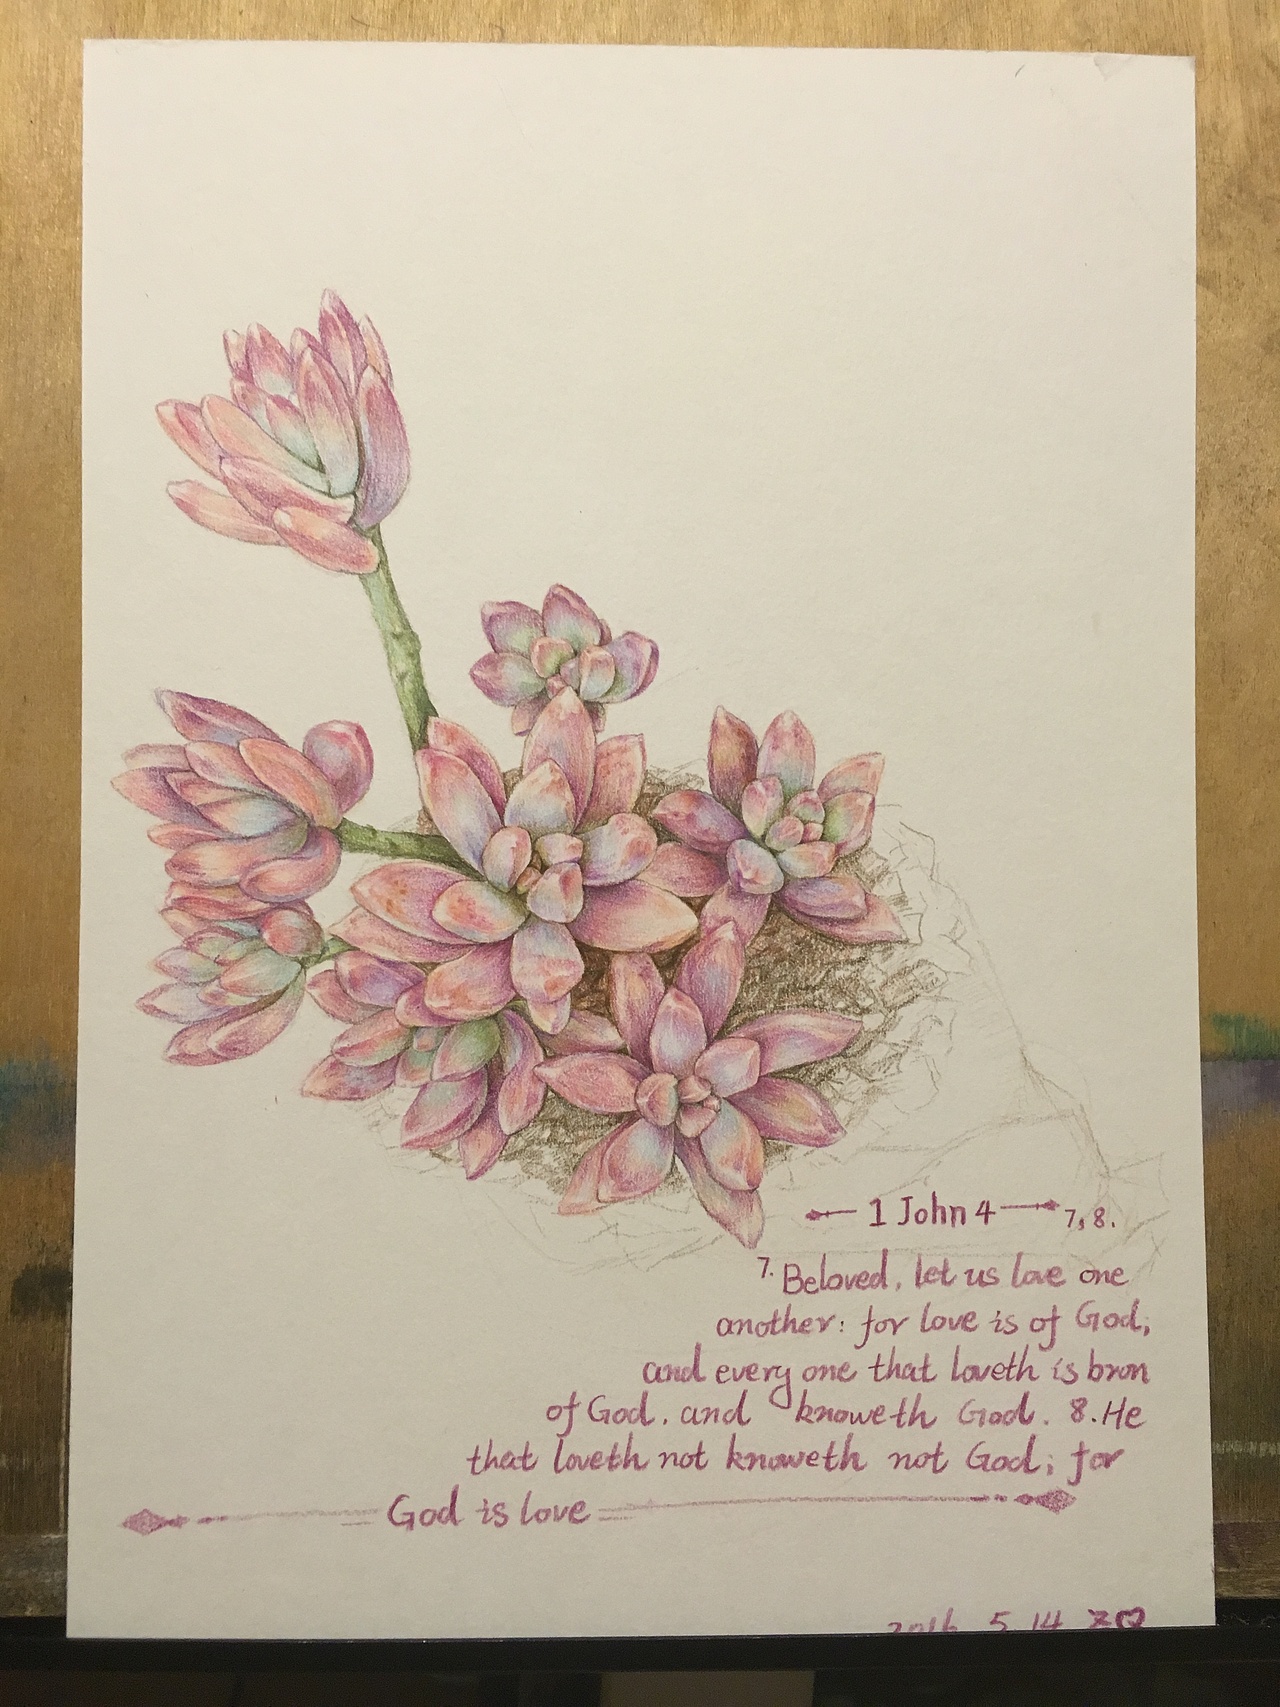 1 John 4 7,8.
7. Beloved, let us love one
another: for love is of God;
and every one that loveth is bron
of God. and knoweth God. 8. He
that loveth not knoweth not God; for
God is love
2016 5 14